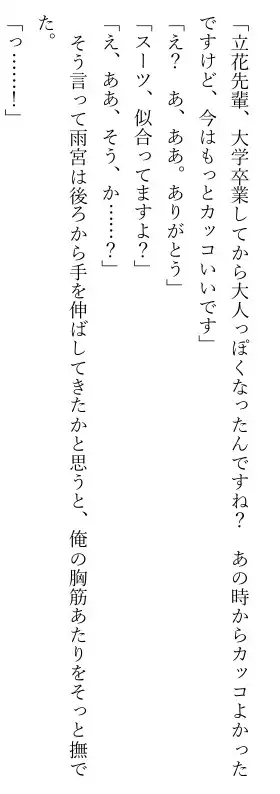 「立花先輩、大学卒業してから大人っぽくなったんですね？　あの時からカッコよかった
ですけど、今はもっとカッコいいです」
「え？　あ、ああ。ありがとう」
「スーツ、似合ってますよ？」
「え、ああ、そう、か……？」
　そう言って雨宮は後ろから手を伸ばしてきたかと思うと、俺の胸筋あたりをそっと撫で
た。
「っ……！」